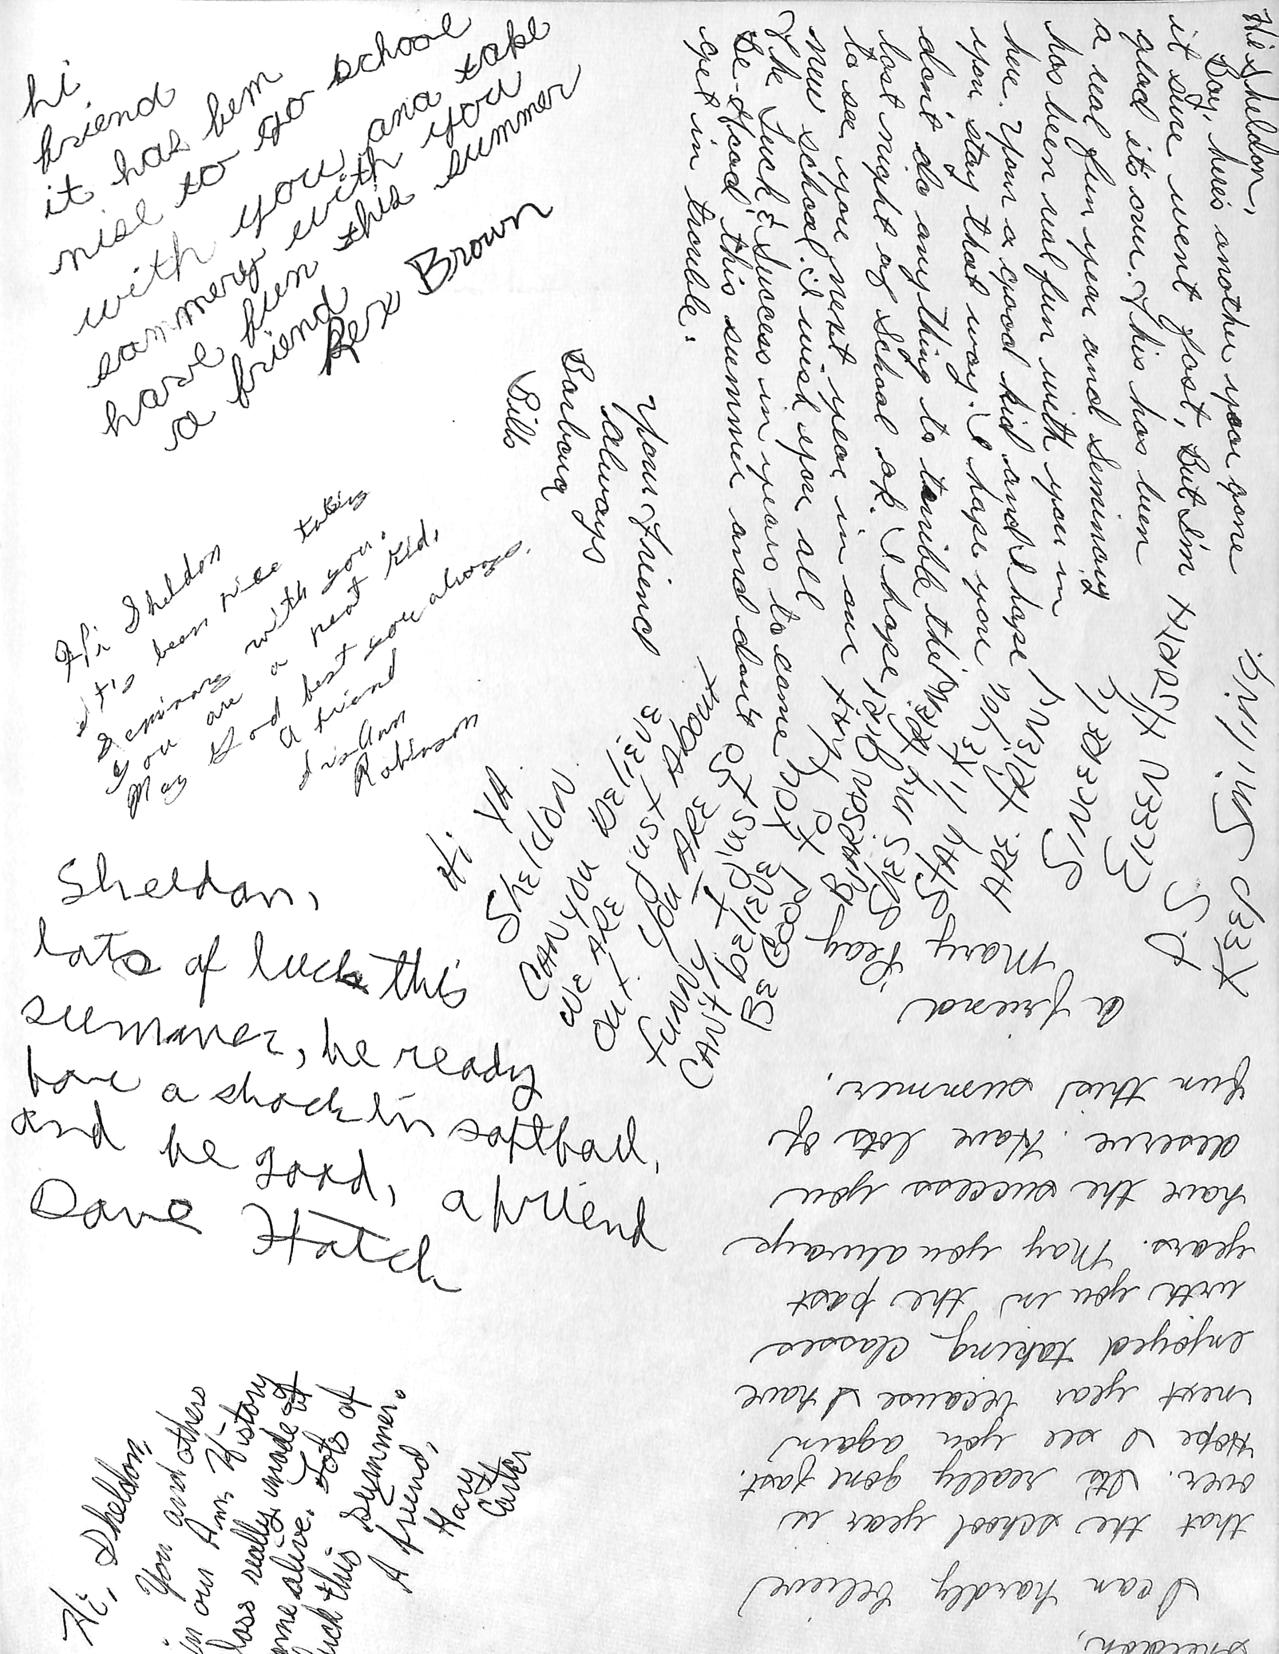 hi
friend
it has bem
nise to go school
with you and take
sammery with you
have fun this summer
a friend
Rex Brown
Hi Sheldon,
Boy, here's another year gone
it sure went fast, But I'm
glad it's over. This has been
a real fun year and Seminary
has been real fun with you in
here. Your a good kid and I hope
you stay that way. I hope you
don't do anything to terrible this
last night of School ok. I hope
to see you next year in our
new school. I wish you all
The Luck & Success in years to come
Be Good this summer and don't
get in trouble.
Your Friend
always
Barbara
Bills
Hi Sheldon
it's been nice taking
Seminary with you.
you are a neat kid,
May God best you always.
A friend
LisAnn
Robinson
Sheldon,
lots of luck this
summer, be ready
have a shock in softball,
and be good, a friend
Dave Hatch
Hi YA
Sheldon
CAN YOU BELIEVE
WE ARE JUST ABOUT
OUT. YOU ARE A
funny
CAN'T
Be Good
Hi, Sheldon,
You and others
in our Am. History
lass really made it
ome alive. Lots of
uck this summer.
A friend,
Mary
Carter
Sheldon,
I can hardly believe
that the school year is
over. It's really gone fast.
Hope I see you again
next year because I have
enjoyed taking classes
with you in the past
years. May you always
have the success you
deserve. Have lots of
fun this summer.
a friend
Mary Peay